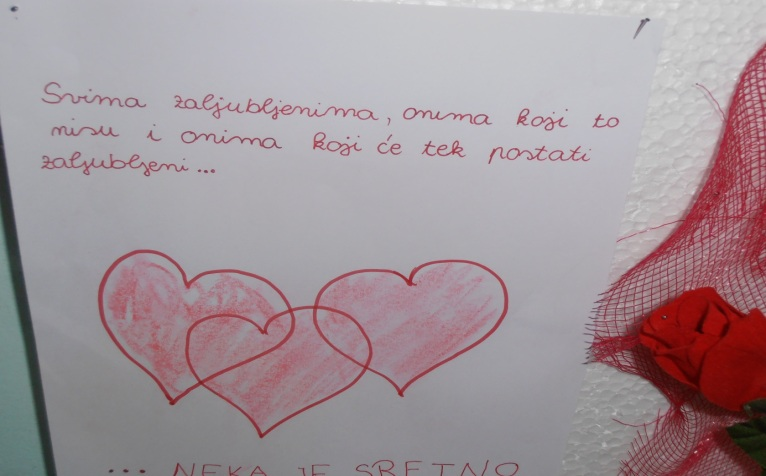 Svima zaljubljenima, onima koji to
nisu i onima koji će tek postati
zaljubljeni...
... NEKA JE SRETNO